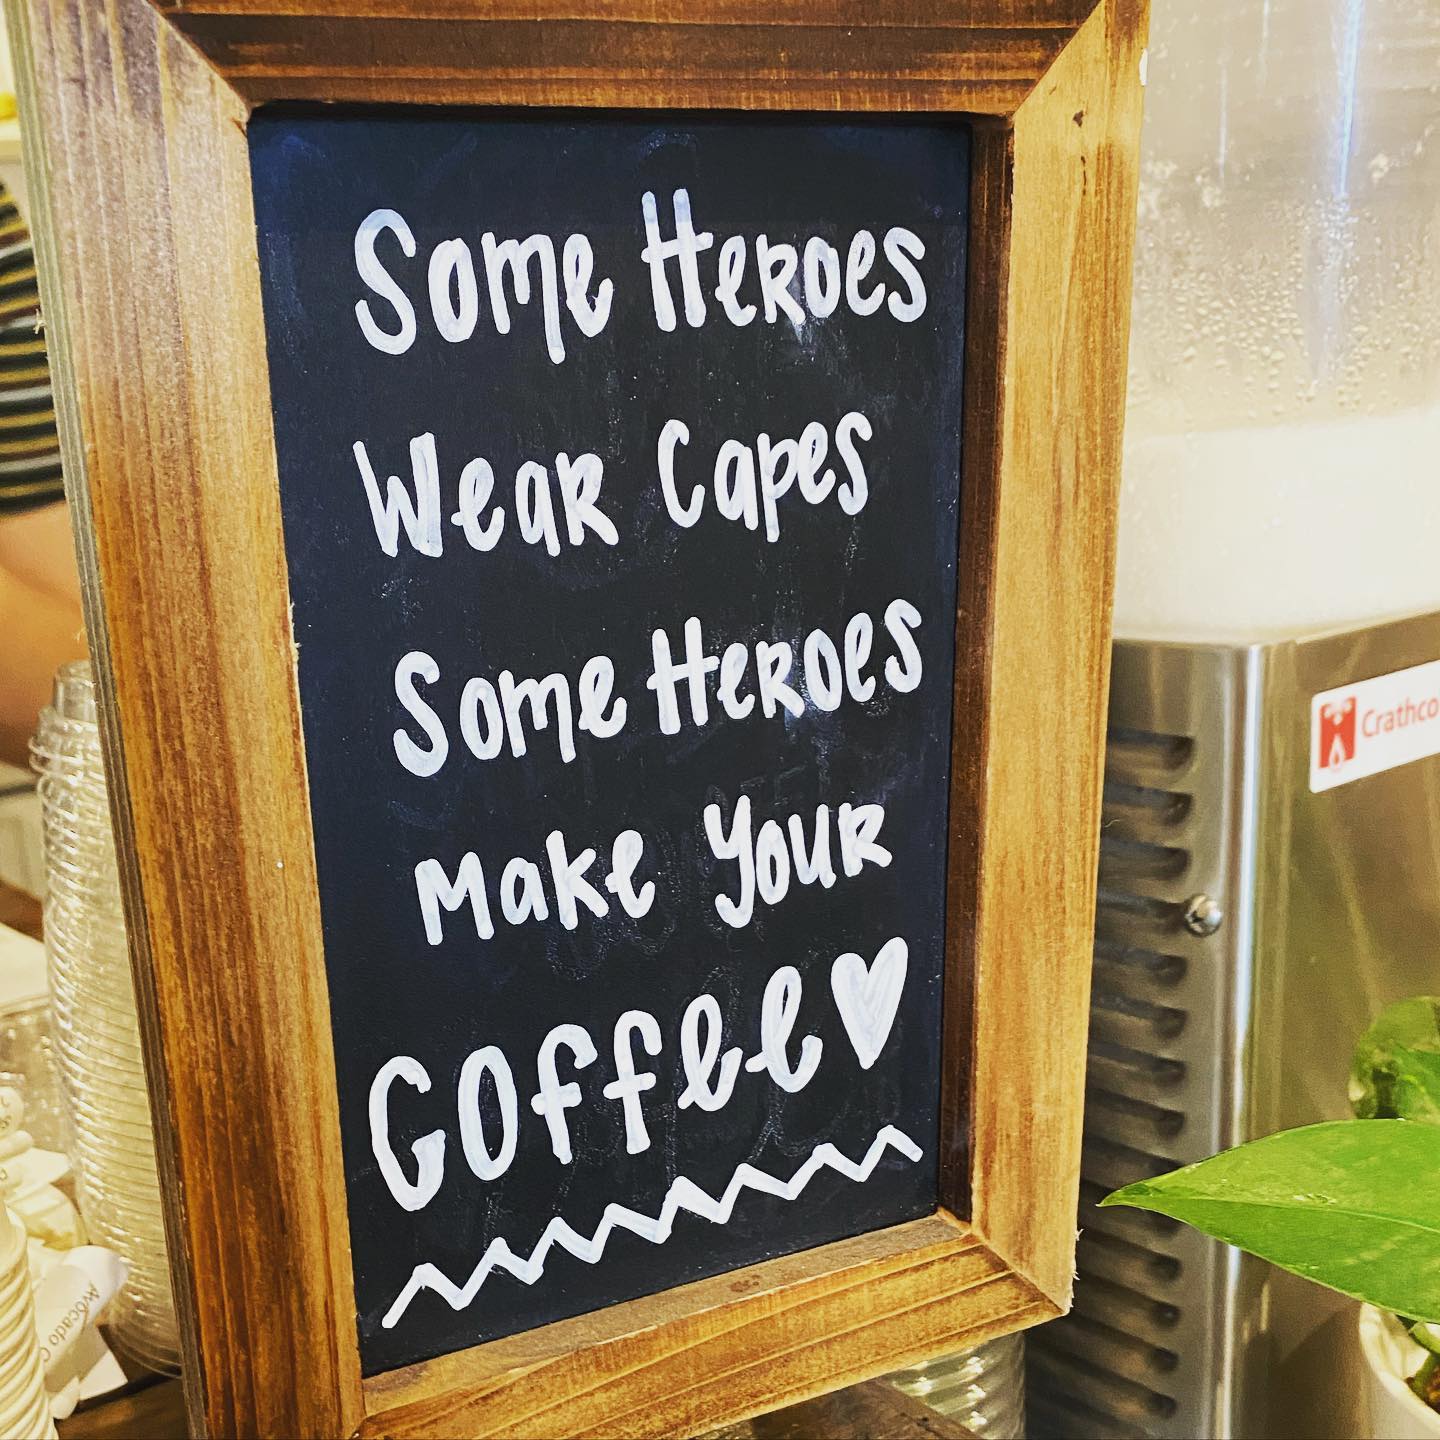 Some Heroes
Wear Capes
Some Heroes
Make Your
Coffee
Crathco
Avocado